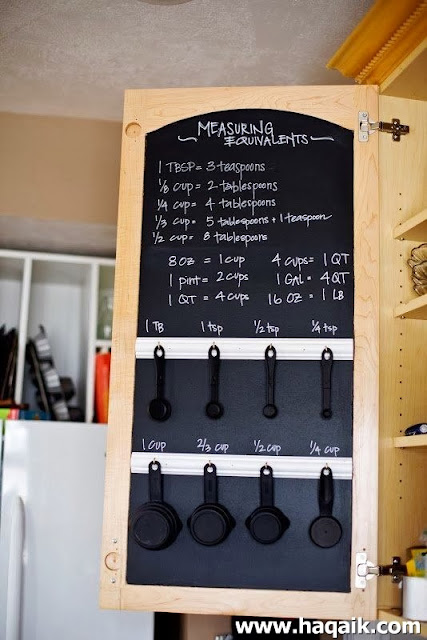 MEASURING
EQUIVALENTS
1 TBSP = 3 teaspoons
1/8 cup = 2 tablespoons
1/4 cup = 4 tablespoons
1/3 cup = 5 tablespoons + 1 teaspoon
1/2 cup = 8 tablespoons
8 oz = 1 cup 4 cups = 1 QT
1 pint = 2 cups 1 Gal = 4 QT
1 QT = 4 cups 16 OZ = 1 LB
1 TB 1 tsp 1/2 tsp 1/4 tsp
1 cup 2/3 cup 1/2 cup 1/4 cup
www.haqaik.com